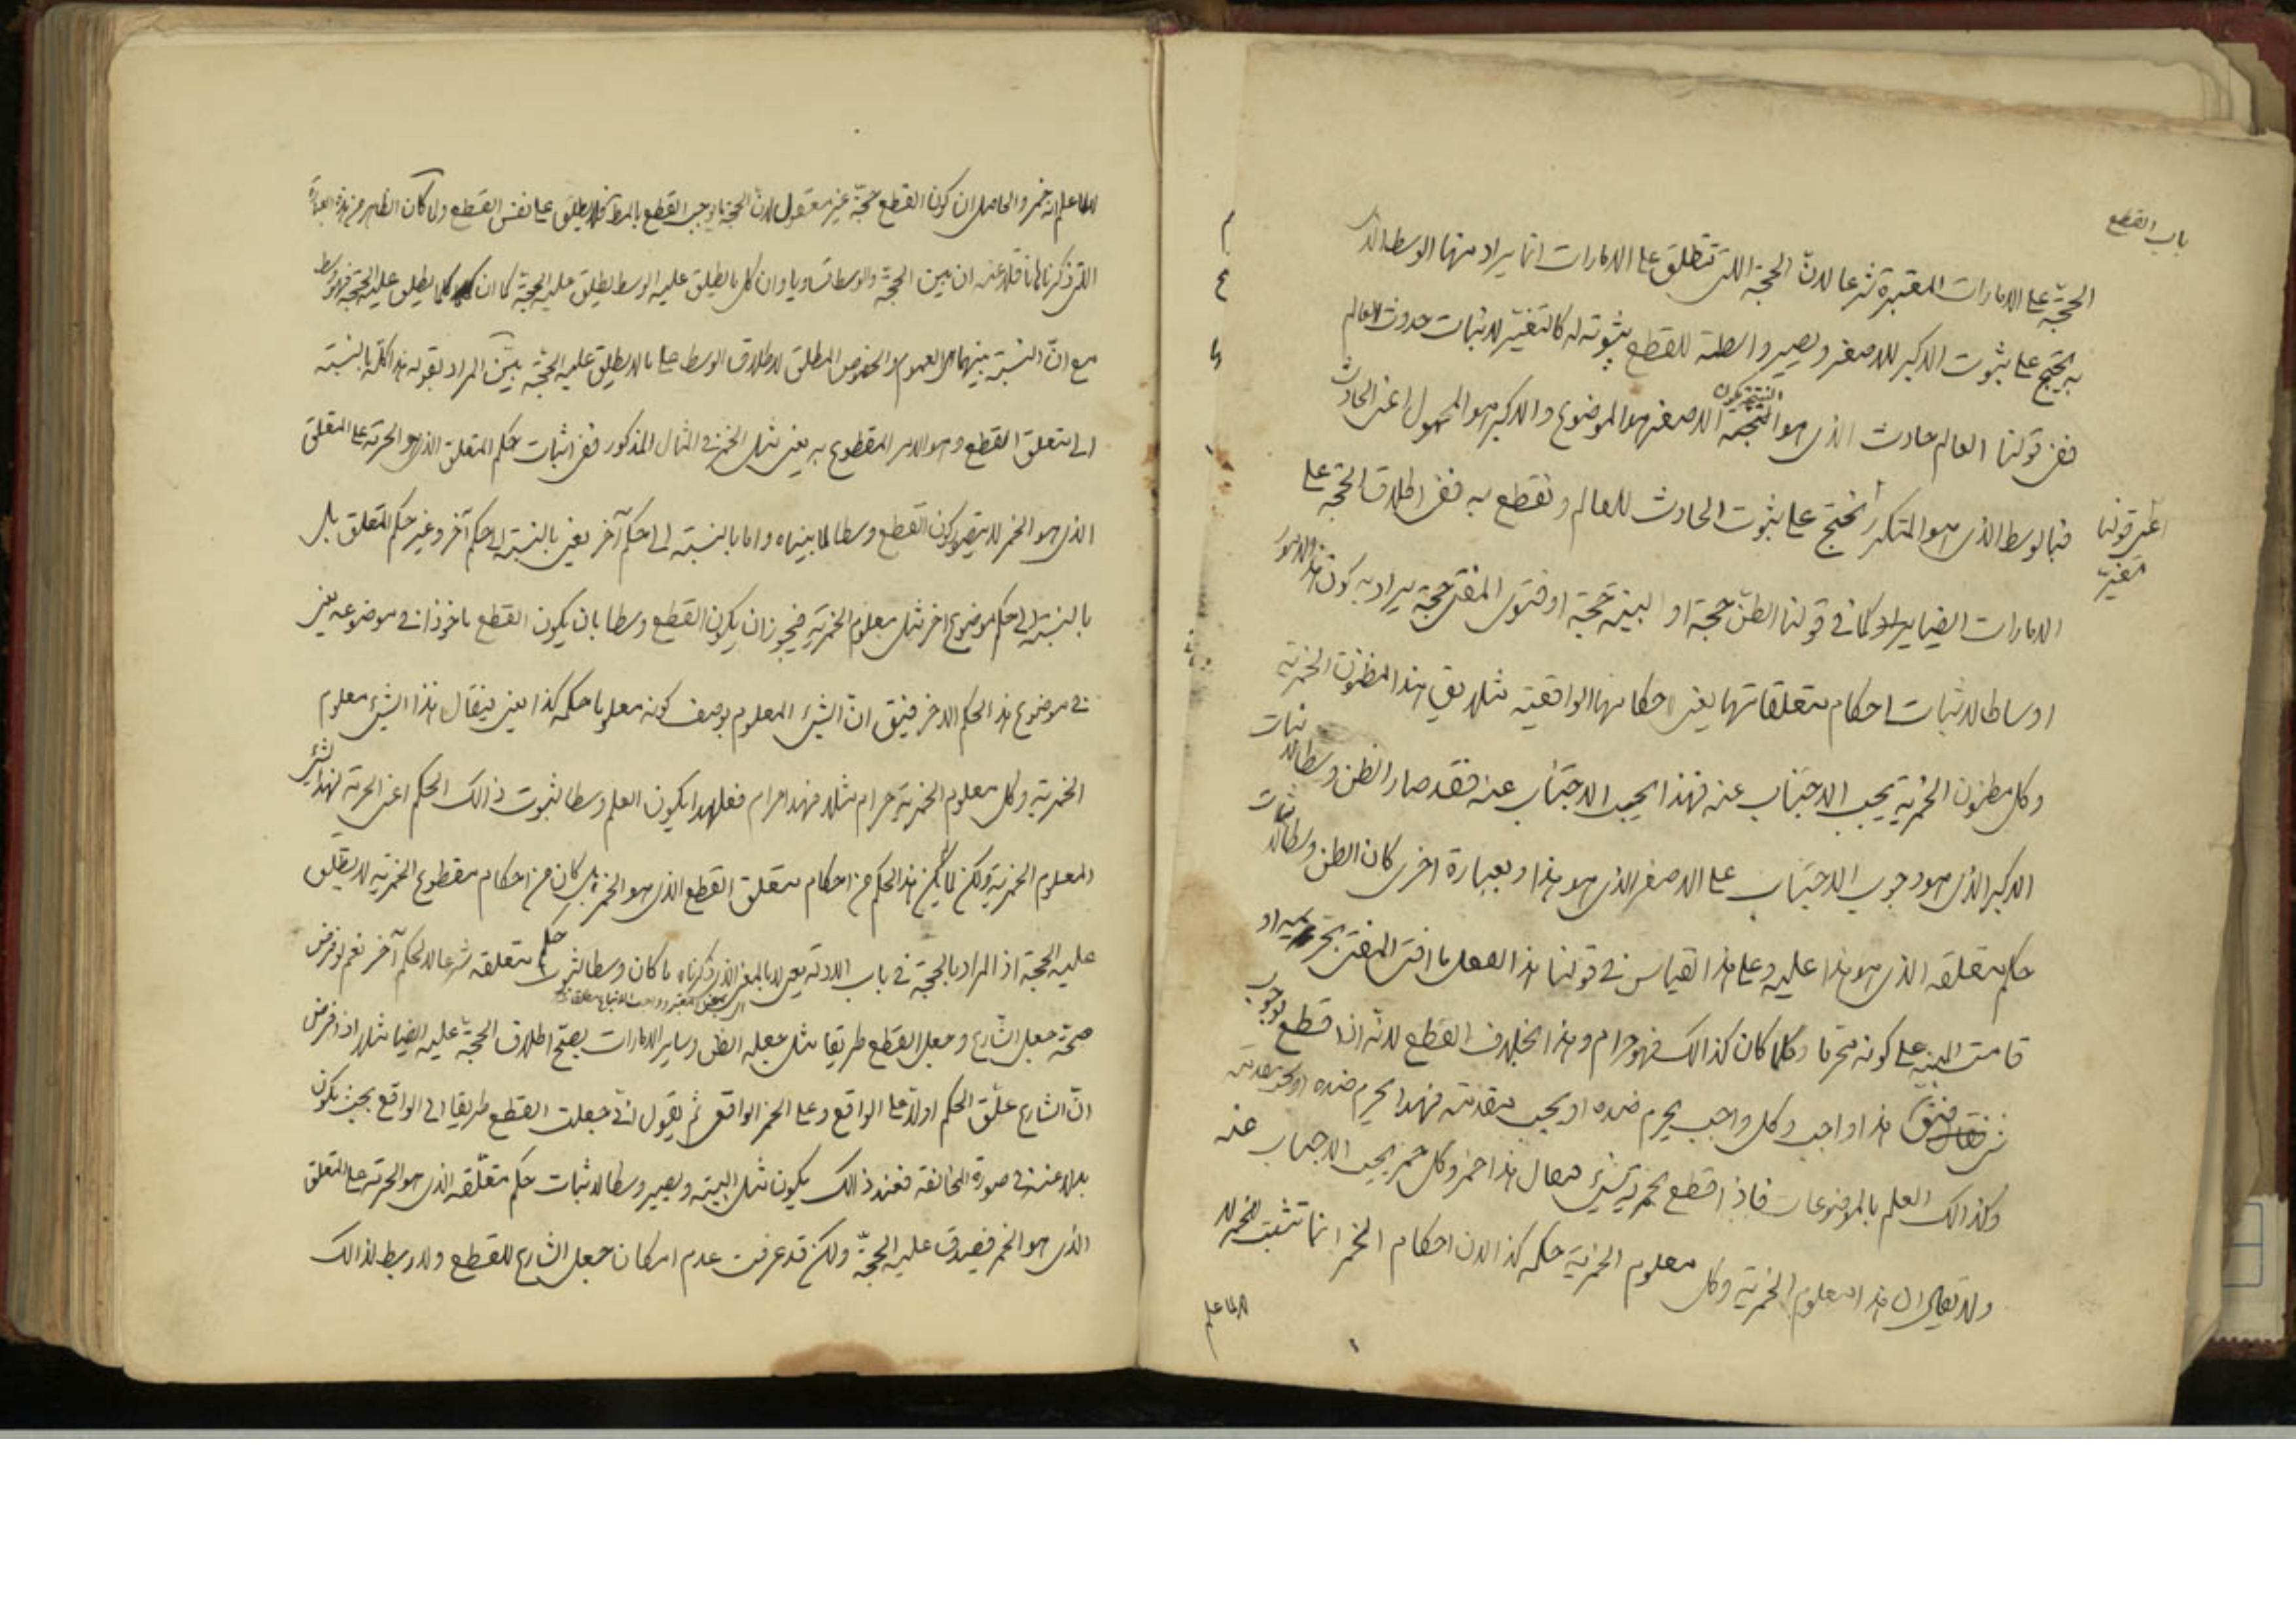 باب القطع
الحجّة على الامارات المعتبرة شرعا لانّ الحجة التى تطلق على الامارات انما يراد منها الوسط الذى
به يحتج على ثبوت الاكبر للاصغر ويصير واسطة للقطع بثبوته له كالتغيّر لاثبات حدوث العالم
ففى قولنا العالم حادث الذى هو النتيجة الاصغر هو الموضوع والاكبر هو المحمول اعنى الحادث
فبالوسط الذى هو المتكرر نحتج على ثبوت الحادث للعالم ونقطع به ففى اطلاق الحجّة على
اعنى قولنا
متغيّر
الامارات ايضا يراد كما فى قولنا الظنّ حجة او البينة حجة او فتوى المفتى حجة يراد به كون هذه الامور
اوساطا لاثبات احكام متعلقاتها يعنى احكامها الواقعية مثلا يق هذا مظنون الخمرية
وكل مظنون الخمرية يجب الاجتناب عنه فهذا يجب الاجتناب عنه فقد صار الظن وسطا لاثبات
الاكبر الذى هو وجوب الاجتناب على الاصغر الذى هو هذا وبعبارة اخرى كان الظن وسطا لاثبات
حكم متعلقه الذى هو هذا عليه وعلى هذا القياس فى قولنا هذا الفعل ما افتى المفتى بتحريمه او
قامت البينة على كونه محرما وكلما كان كذالك فهو حرام وهذا بخلاف القطع لانّه اذا قطع بوجوب
شئ فيق هذا واجب وكل واجب يحرم ضده او يجب مقدمته فهذا يحرم ضده او يجب مقدمته
وكذالك العلم بالموضوعات فاذا قطع بخمرية شئ فيقال هذا خمر وكل خمر يجب الاجتناب عنه
ولا يقال ان هذا معلوم الخمرية وكل معلوم الخمرية حكمه كذا لان احكام الخمر انما تثبت للخمر لا
لما علم
لا لما علم انه خمر والحاصل ان كون القطع حجّة غير معقول لانّ الحجة ما يوجب القطع بالمط فلا يطلق على نفس القطع ولما كان الظاهر من هذه العبارة
التى ذكرنا ما قلا عنه ان بين الحجّة والوسط تساويا وان كل ما يطلق عليه الوسط يطلق عليه الحجّة كما ان كلما يطلق عليه الحجة فهو وسط
مع انّ النسبة بينهما هى العموم والخصوص المطلق لاطلاق الوسط على ما لا يطلق عليه الحجّة بيّن المراد بقوله هذا كلّه بالنسبة
الى متعلق القطع وهو الامر المقطوع به يعنى مثل الخمر فى المثال المذكور ففى اثبات حكم المتعلق الذى هو الحرمة على المتعلق
الذى هو الخمر لا يتصور كون القطع وسطا لما بيناه واما بالنسبة الى حكم آخر يعنى بالنسبة الى حكم آخر وغير حكم المتعلق بل
بالنسبة الى حكم موضوع اخر مثل معلوم الخمرية فيجوز ان يكون القطع وسطا بان يكون القطع ماخوذا فى موضوعه يعنى
فى موضوع هذا الحكم الاخر فيق انّ الشئ المعلوم بوصف كونه معلوما حكمه كذا يعنى فيقال هذا الشئ معلوم
الخمرية وكل معلوم الخمرية حرام مثلا فهذا حرام فعلى هذا يكون العلم وسطا لثبوت ذالك الحكم اعنى الحرمة لهذا الشئ
المعلوم الخمرية ولكن لما لم يكن هذا الحكم من احكام متعلق القطع الذى هو الخمر بل كان من احكام مقطوع الخمرية لا يطلق
عليه الحجة اذ المراد بالحجّة فى باب الادلة يعنى لا بالمعنى الذى ذكرناه ما كان وسطا لثبوت حكم متعلقه شرعا لا لحكم آخر نعم لو فرض
صحّة جعل الشارع وجعل القطع طريقا مثل جعله الظن وساير الامارات يصحّ اطلاق الحجّة عليه ايضا مثلا اذا فرض
انّ الشارع علّق الحكم اولا على الواقع وعلى الخمر الواقعى ثم يقول انّى جعلت القطع طريقا الى الواقع بحيث يكون
بدلا عنه فى صورة المخالفة فعند ذالك يكون مثل البينة ويصير وسطا لاثبات حكم متعلّقه الذى هو الحرمة على المتعلق
الذى هو الخمر فيصدق عليه الحجّة ولكن قد عرفت عدم امكان جعل الشارع للقطع ولا ربط لذالك